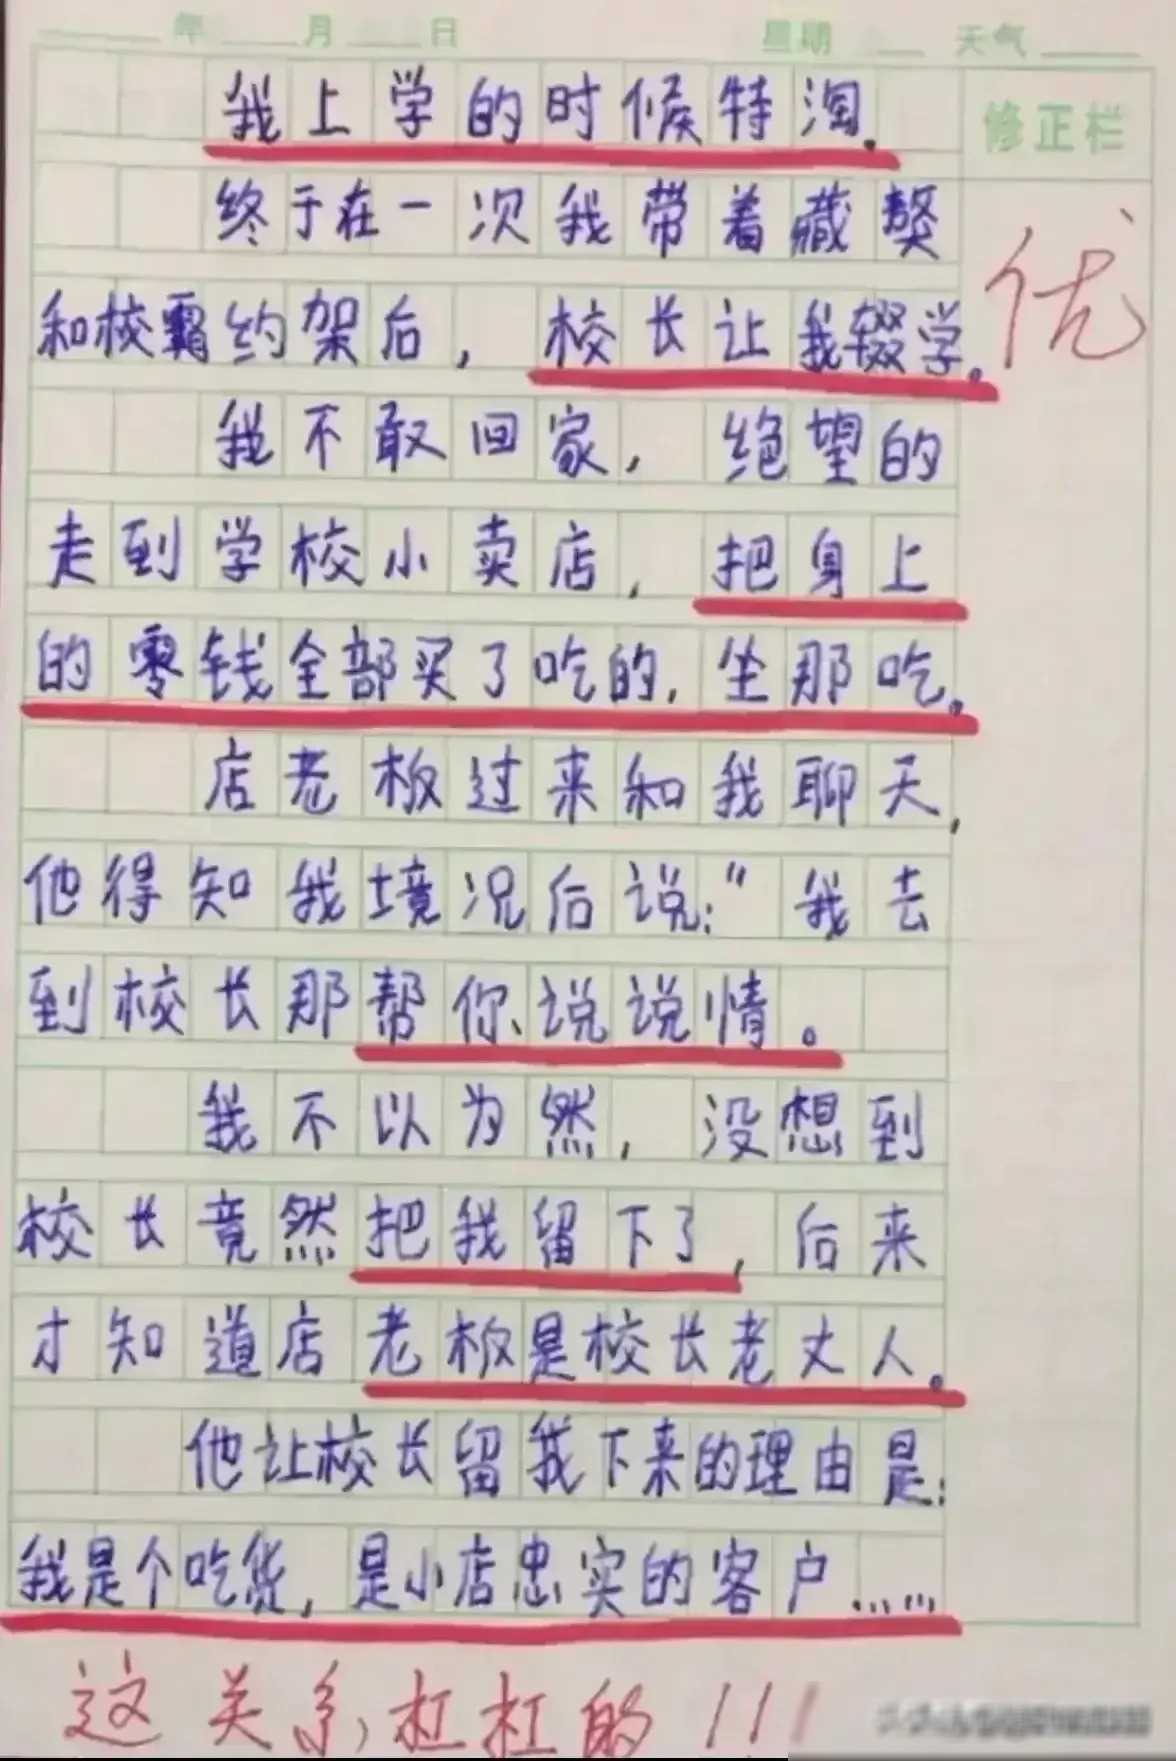 年 月 日 星期 天气
修正栏
我上学的时候特淘.
终于在一次我带着藏獒
和校霸约架后,校长让我辍学。
优
我不敢回家,绝望的
走到学校小卖店,把身上
的零钱全部买了吃的,坐那吃。
店老板过来和我聊天,
他得知我境况后说:"我去
到校长那帮你、说说情。
我不以为然,没想到
校长竟然把我留下了,后来
才知道店老板是校长老丈人。
他让校长留我下来的理由是:
我是个吃货,是小店忠实的客户……
这关系杠杠的!!!